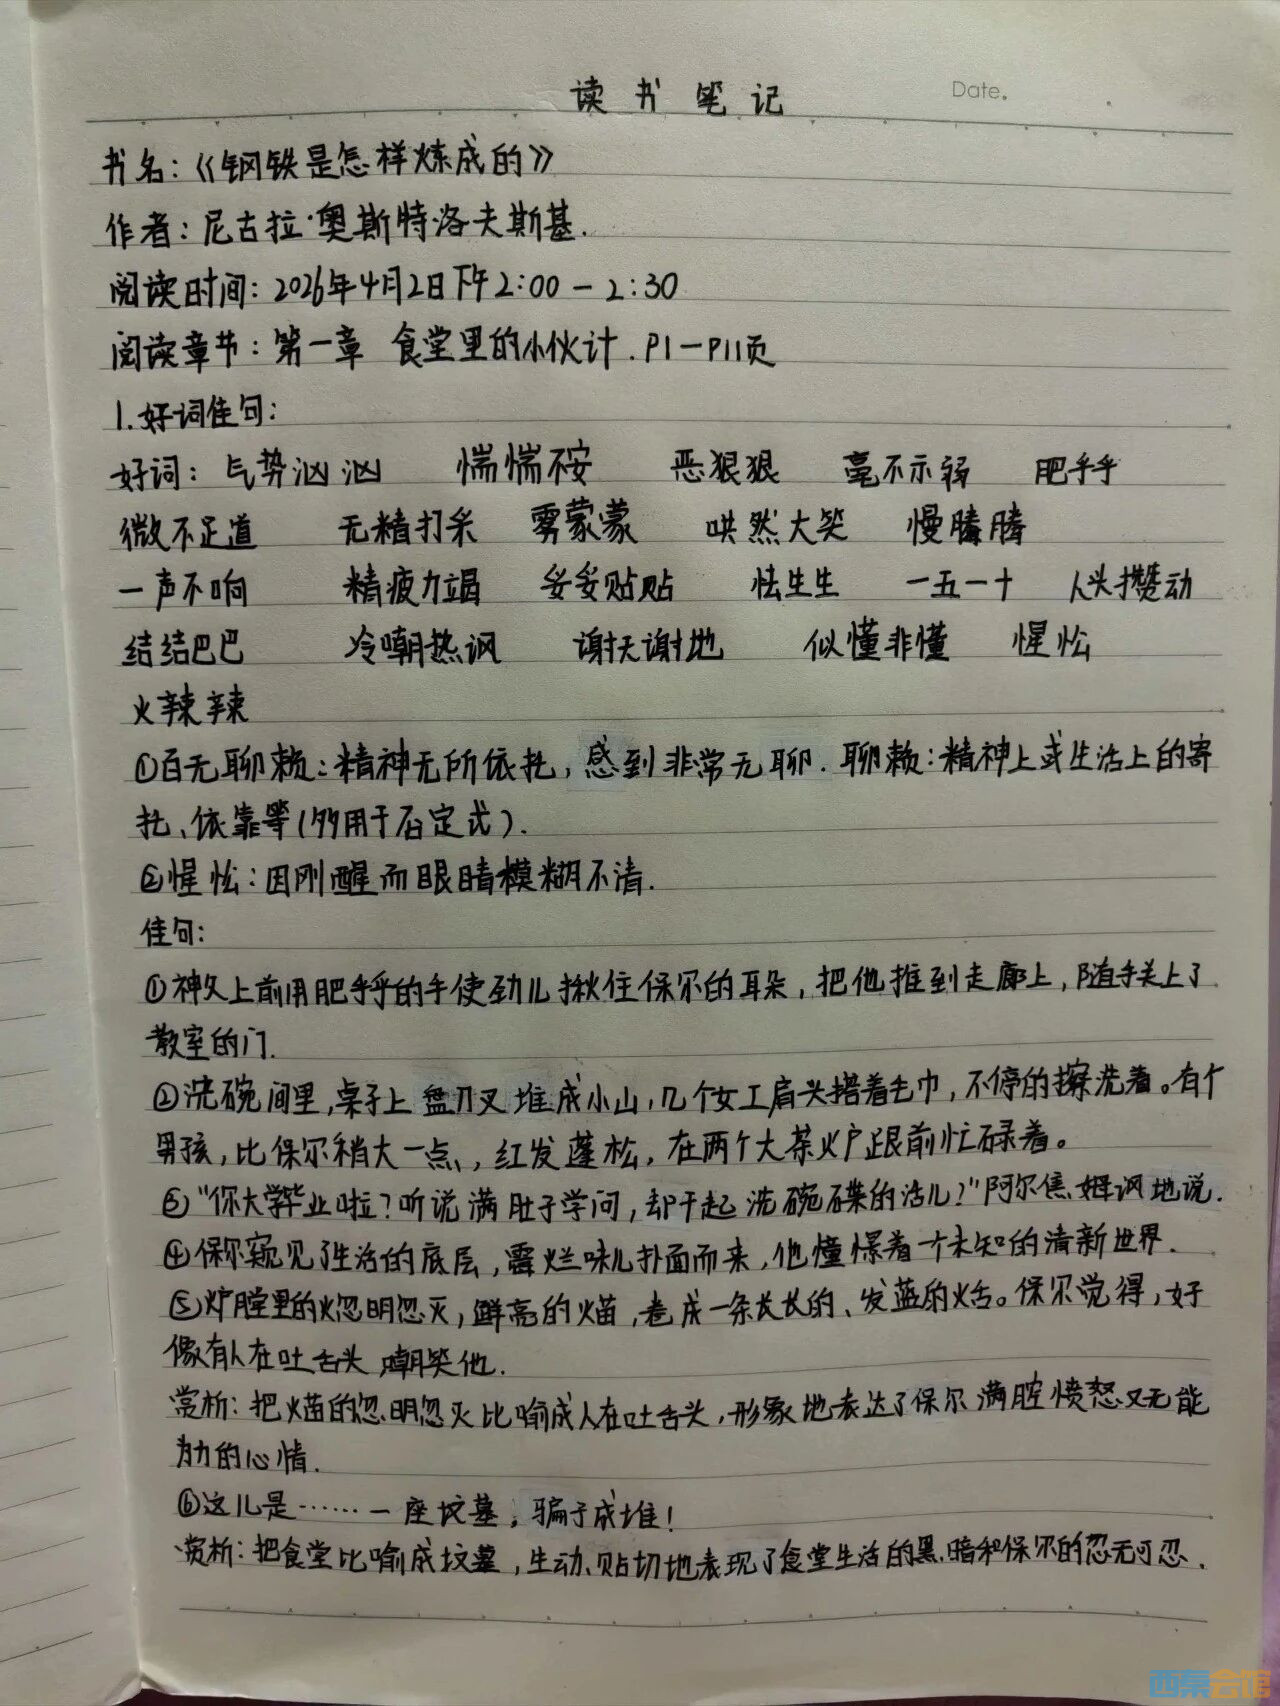 读书笔记
Date.
书名：《钢铁是怎样炼成的》
作者：尼古拉·奥斯特洛夫斯基.
阅读时间：2026年4月2日下午2:00－2:30
阅读章节：第一章 食堂里的小伙计.P1－P11页
1.好词佳句：
好词：气势汹汹 惴惴不安 恶狠狠 毫不示弱 肥乎乎
微不足道 无精打采 雾蒙蒙 哄然大笑 慢腾腾
一声不响 精疲力竭 妥妥贴贴 怯生生 一五一十 人头攒动
结结巴巴 冷嘲热讽 谢天谢地 似懂非懂 惺忪
火辣辣
①百无聊赖：精神无所依托，感到非常无聊.聊赖：精神上或生活上的寄
托、依靠等(多用于否定式).
②惺忪：因刚醒而眼睛模糊不清.
佳句：
①神父上前用肥乎乎的手使劲儿揪住保尔的耳朵，把他推到走廊上，随手关上了
教室的门.
②洗碗间里，桌子上盘刀叉堆成小山，几个女工肩头搭着毛巾，不停的擦洗着。有个
男孩，比保尔稍大一点，红发蓬松，在两个大茶火炉跟前忙碌着。
③"你大学毕业啦？听说满肚子学问，却干起洗碗碟的活儿？"阿尔焦姆讽地说.
④保尔窥见了生活的底层，霉烂味儿扑面而来，他憧憬着一个未知的清新世界.
⑤炉膛里的火忽明忽灭，鲜亮的火苗，卷成一条长长的、发蓝的火舌。保尔觉得，好
像有人在吐舌头，嘲笑他.
赏析：把火苗的忽明忽灭比喻成人在吐舌头，形象地表达了保尔满腔愤怒又无能
为力的心情.
⑥这儿是……一座坟墓，骗子成堆！
赏析：把食堂比喻成坟墓，生动、贴切地表现了食堂生活的黑暗和保尔的忍无可忍.
西秦会馆